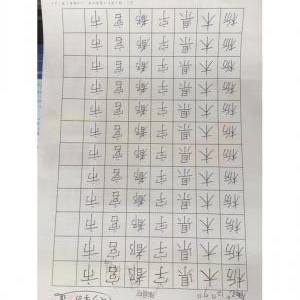 栃木県宇都宮市
栃木県宇都宮市
栃木県宇都宮市
栃木県宇都宮市
栃木県宇都宮市
栃木県宇都宮市
栃木県宇都宮市
栃木県宇都宮市
栃木県宇都宮市
栃木県宇都宮市
栃木県宇都宮市
栃木県宇都宮市